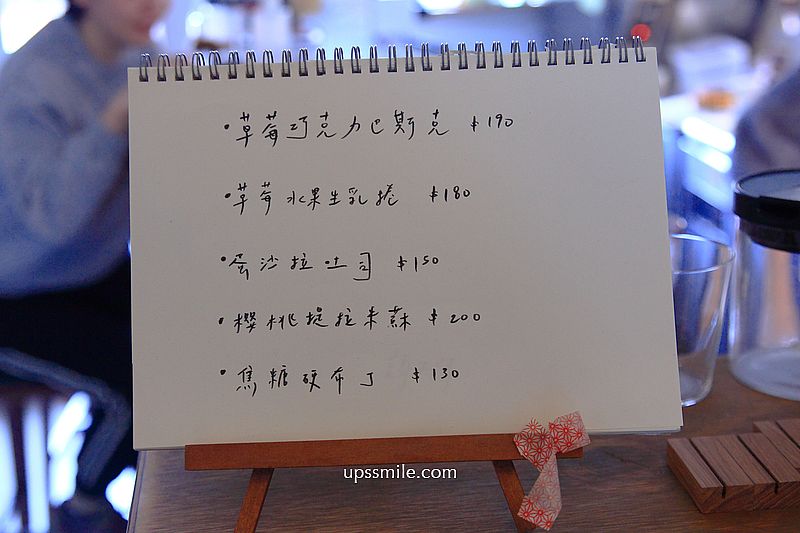 •草莓巧克力巴斯克 $190
•草莓水果生乳捲 $180
•蛋沙拉吐司 $150
•櫻桃提拉米蘇 $200
•焦糖硬布丁 $130
upssmile.com